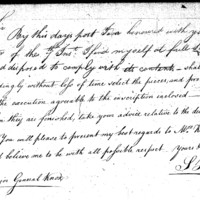 Sir
By this days post I am honour'd with yo
of the 7th Inst. I find myself d fully
and disposed to comply with its contents – shall
pingly without loss of time select the pieces, and pro
the execution agreable to the inscription enclosed –
n they are finished, take your advice relative to the de
You will please to present my best regards to Mrs K
d believe me to be with all possible respect. yours
jor General Knox